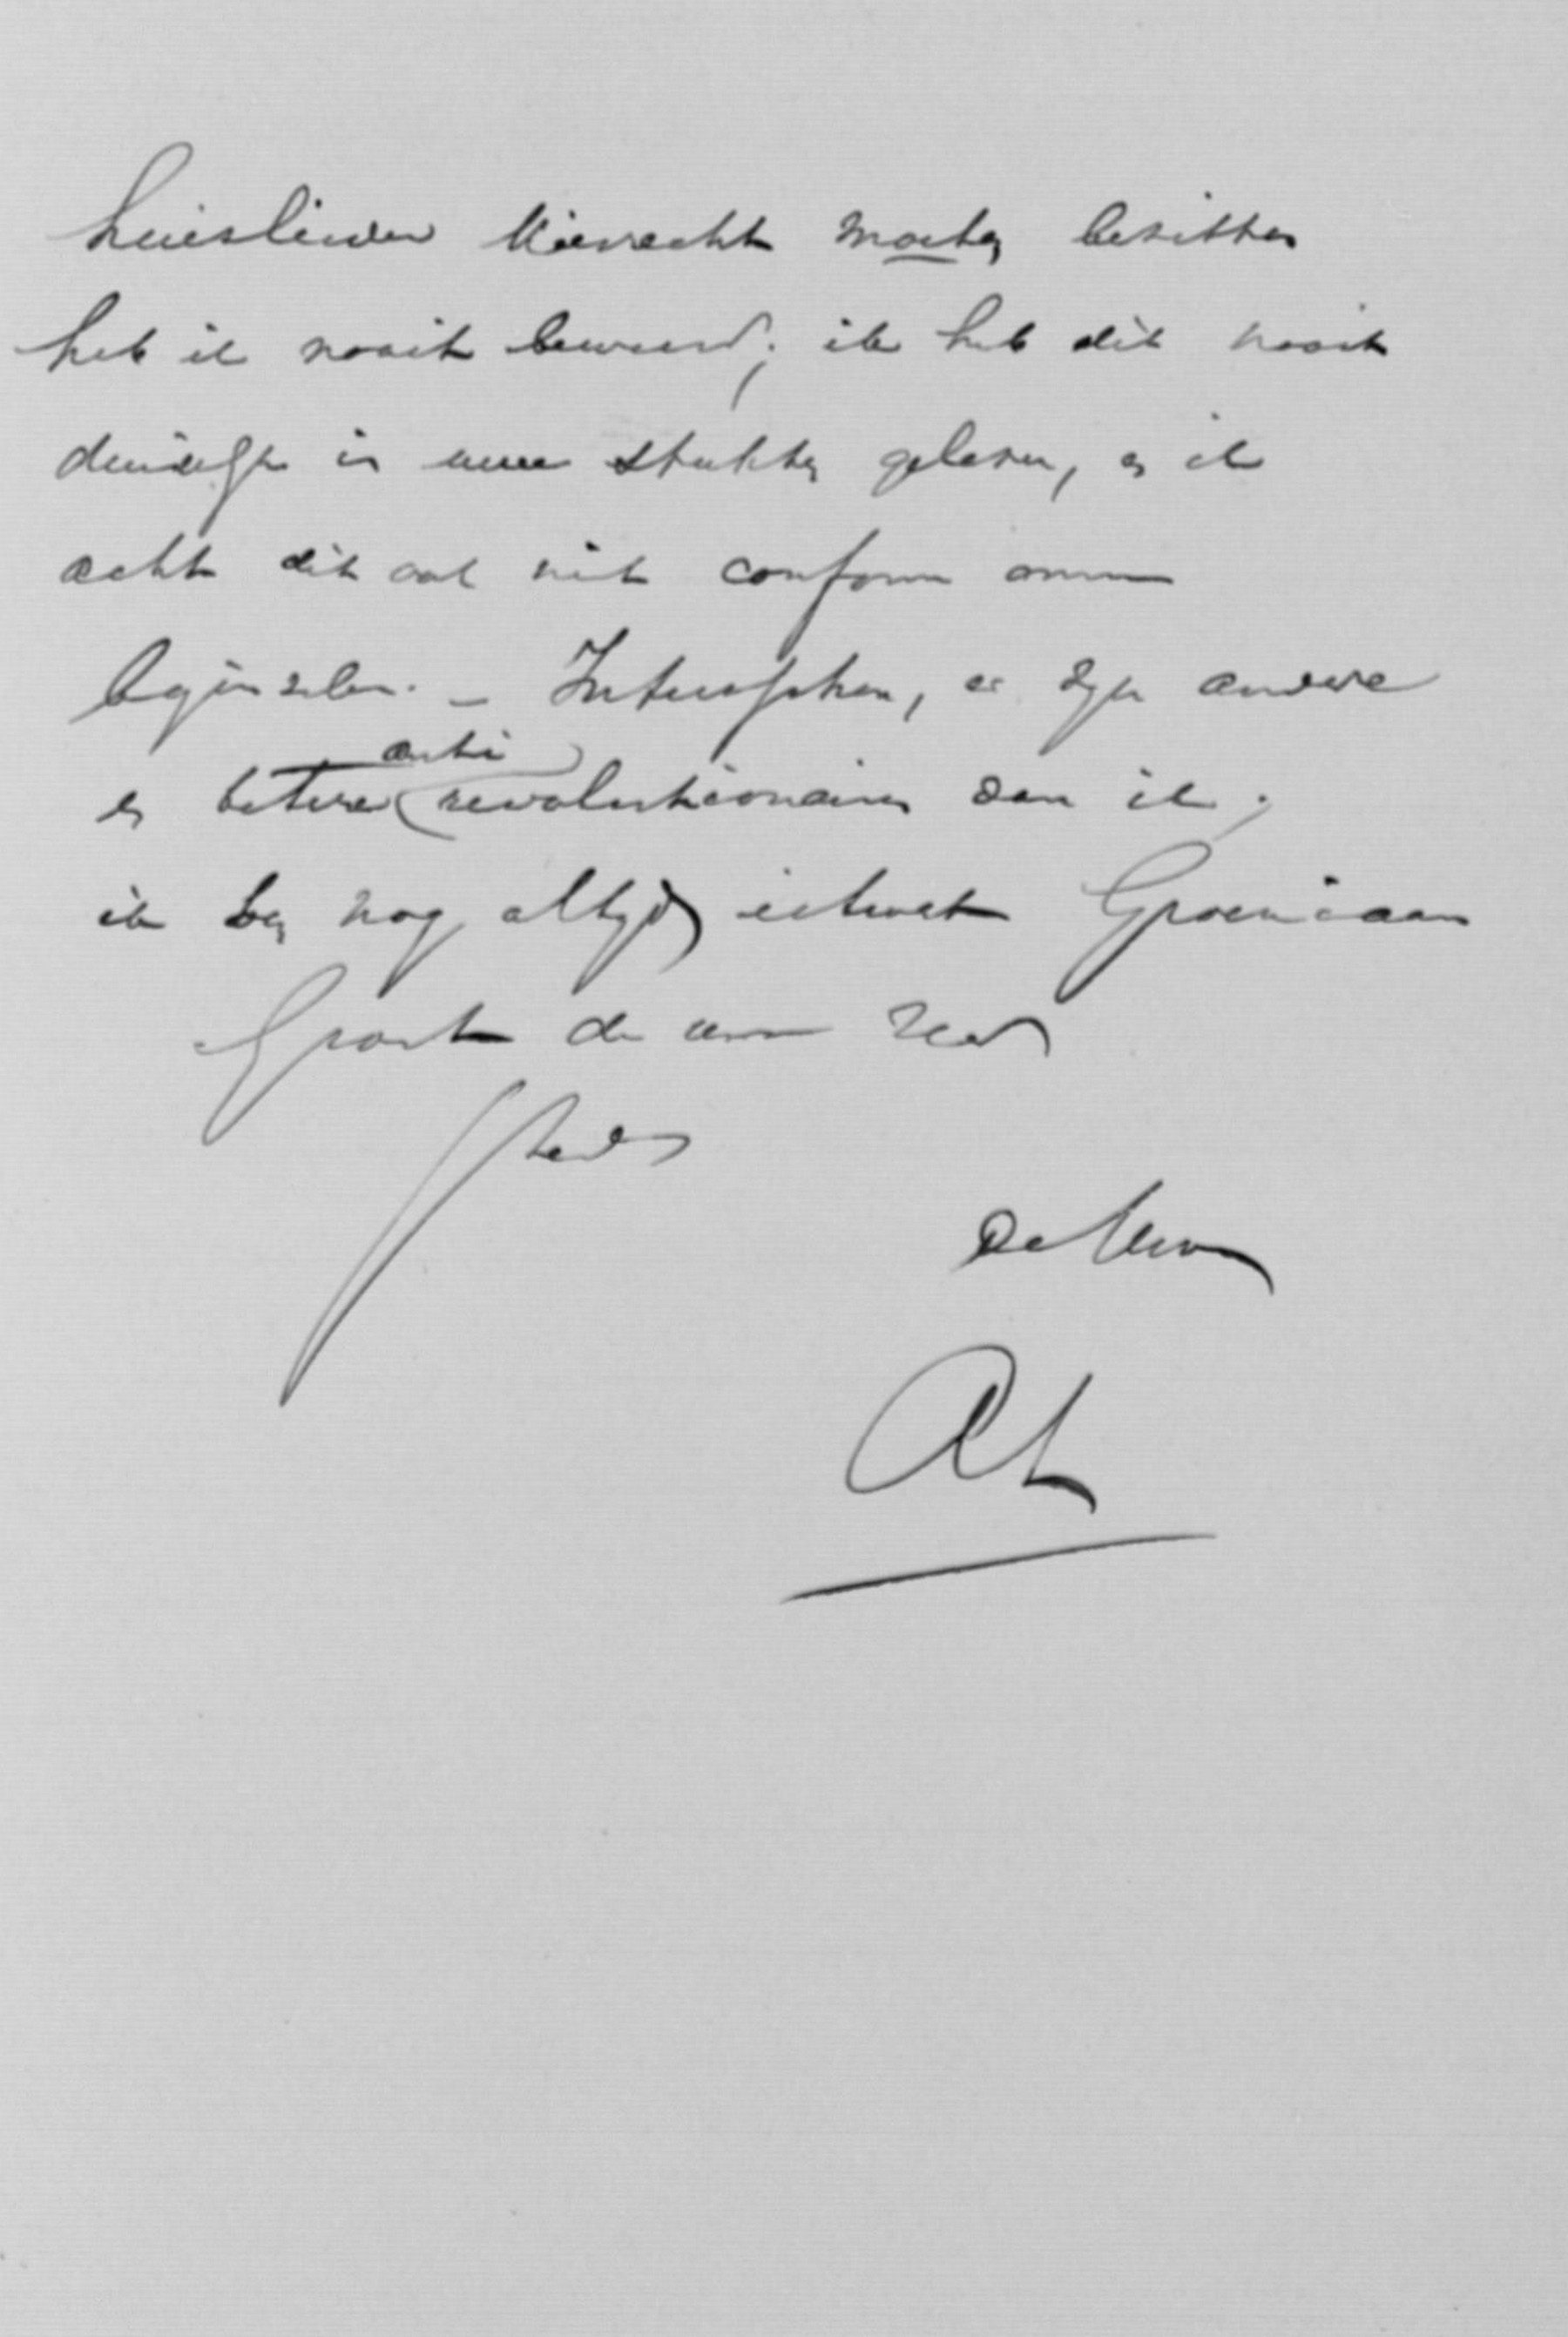 huislieden kiesrecht moeten bezitten
heb ik nooit beweerd; ik heb dit nooit
in uwe stukken gelezen, en ik
acht dit ook niet conform onze
beginselen. - Intusschen, er zijn andere
en betere anti revolutionairen dan ik;
ik ben nog altijd ietwat Groeniaan
Groet de uwen zeer
Steeds
de Uwe